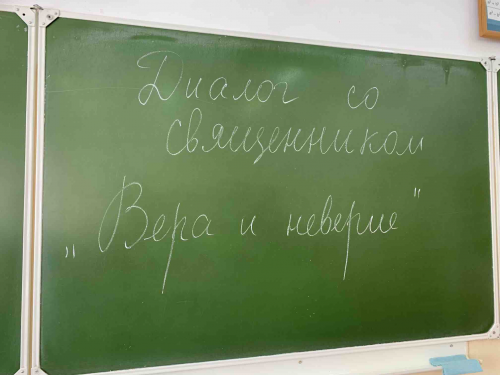 Диалог со
священником
„Вера и неверие"